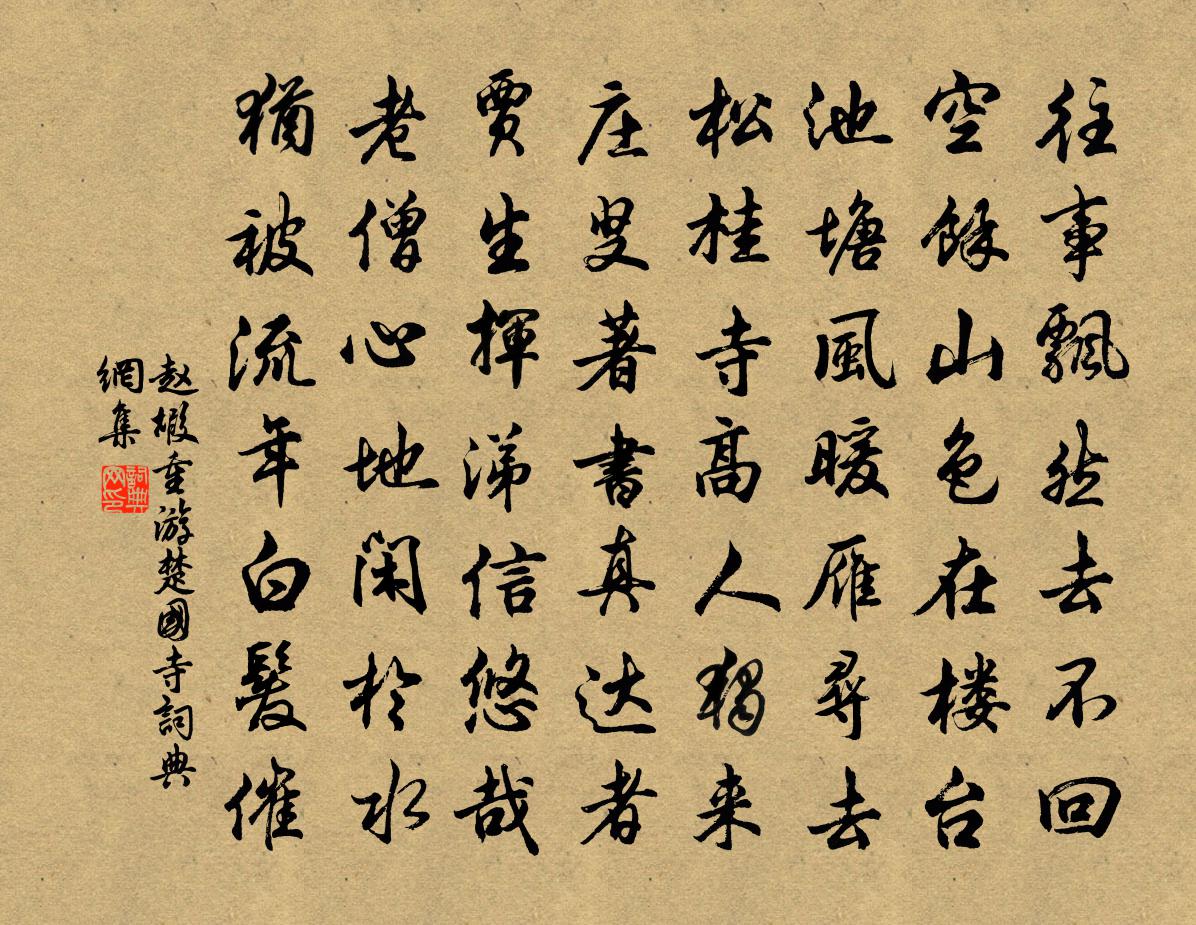 往事飄然去不回
空餘山色在楼台
池塘風暖雁尋去
松桂寺高人獨来
庄叟著書真达者
賈生揮涕信悠哉
老僧心地闲於水
猶被流年白髮催
赵嘏重游楚國寺詞典
網集
詞典网印